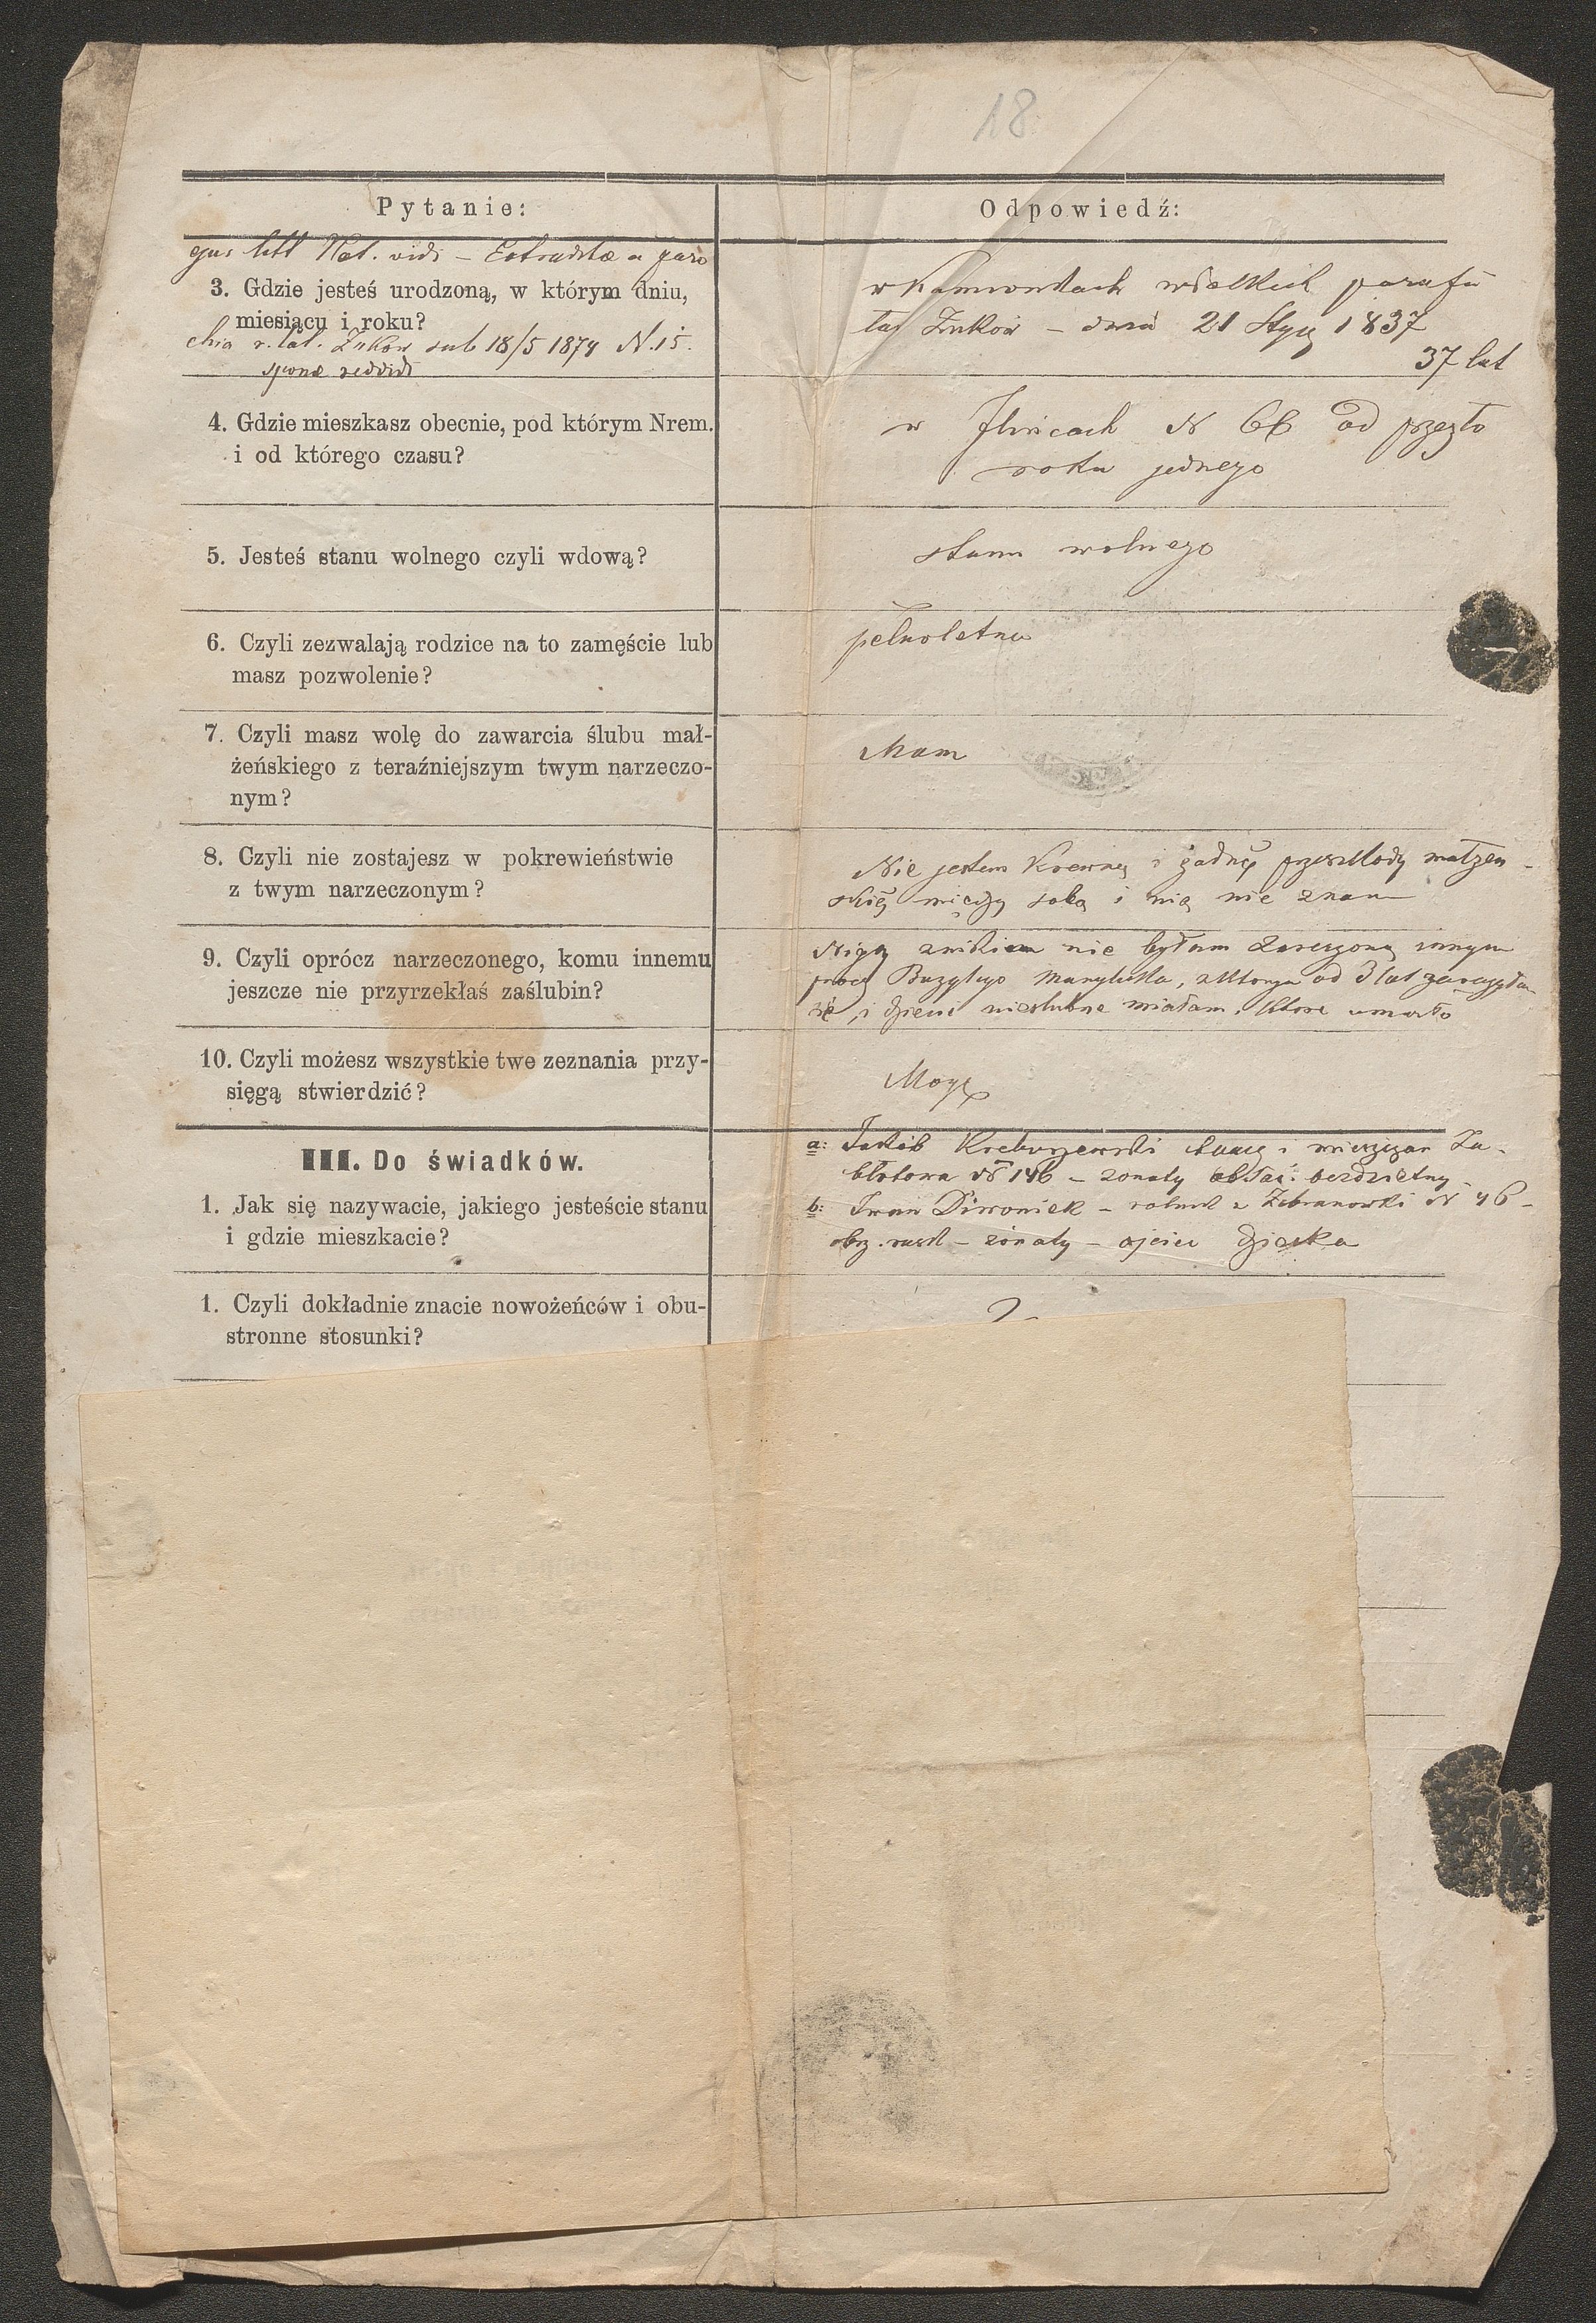 18
Pytanie:
Odpowiedź:
ejus litt Nat. vidi – Extraditae a paro
3. Gdzie jesteś urodzoną, w którym dniu,
miesiącu i roku?
chia r. lat. Żukow sub 18/5 1874 N. 15.
reddidi
w Kamionkach wielkich parafii
łaś Żuków – dnia 21 Stycz 1837
37 lat
4. Gdzie mieszkasz obecnie, pod którym Nrem.
i od którego czasu?
w Ilińcach N 66 od przeszło
roku jednego
5. Jesteś stanu wolnego czyli wdową?
stanu wolnego
6. Czyli zezwalają rodzice na to zamęście lub
masz pozwolenie?
pełnoletna
7. Czyli masz wolę do zawarcia ślubu mał-
żeńskiego z teraźniejszym twym narzeczo-
nym?
Mam
8. Czyli nie zostajesz w pokrewieństwie
z twym narzeczonym?
Nie jestem Krewną i żadnej przeszkody małżeń-
skiej między sobą i nią nie znam
9. Czyli oprócz narzeczonego, komu innemu
jeszcze nie przyrzekłaś zaślubin?
Nigdy z nikim nie byłam zaręczoną innym
prócz Bazylego, z którym od 3 lat
się, i dzieci nieślubne miałam, które umarło
10. Czyli możesz wszystkie twe zeznania przy-
sięgą stwierdzić?
Mogę
III. Do świadków.
1. Jak się nazywacie, jakiego jesteście stanu
i gdzie mieszkacie?
a: Jakób i mieszczan Za-
błotowa N 146 – żonaty obłać. bezdzietny
b: Iwan – rolnik z N 46 –
obrz. rusk – żonaty – ojciec dziecka
1. Czyli dokładnie znacie nowożeńców i obu-
stronne stosunki?